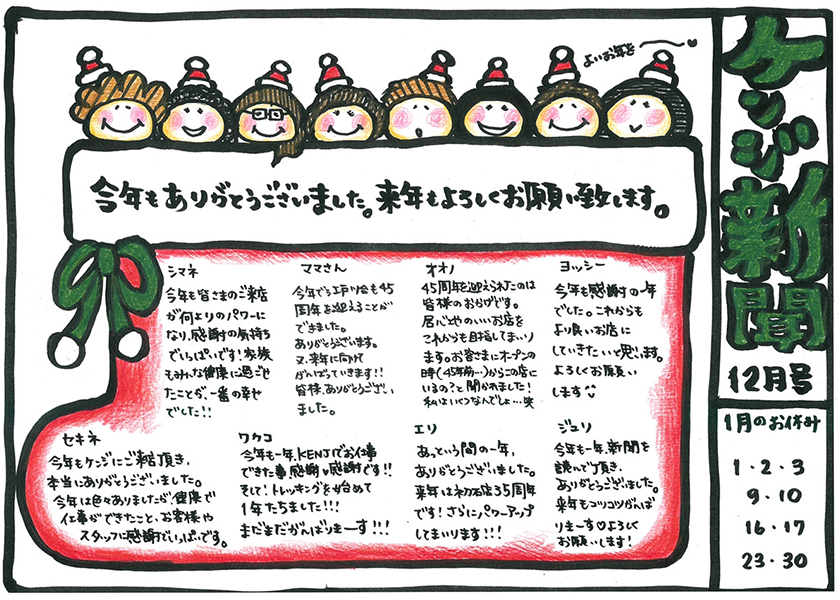 ケンジ新聞
12月号
1月のお休み
1・2・3
9・10
16・17
23・30
よいお年を
今年もありがとうございました。来年もよろしくお願い致します。
シマネ
今年も皆さまのご来店
が何よりのパワーに
なり、感謝の気持ち
でいっぱいです!家族
もみんな健康に過ごせ
たことが、一番の幸せ
でした!!
ママさん
今年で
45
周年を迎えることが
できました。
ありがとうございます。
又、来年に向けて
がんばっていきます!!
皆様、ありがとうござい
ました。
オオノ
45周年を迎えられたのは
皆様のおかげです。
居心地のいいお店を
これからも目指してまいり
ます。お客さまにオープンの
時(45年前…)からこの店に
いるの?と聞かれました!
私はいくつなんでしょ…笑
ヨッシー
今年も感謝の一年
でした。これからも
より良いお店に
していきたいと思います。
よろしくお願い
します
セキネ
今年もケンジにご来店頂き、
本当にありがとうございました。
今年は色々ありましたが、健康で
仕事ができたこと、お客様や
スタッフに感謝でいっぱいです。
ワカコ
今年も一年、KENJIでお仕事
できた事、感謝感謝です!!
そして!トレッキングを始めて
1年たちました!!!
まだまだがんばりまーす!!!
エリ
あっという間の一年、
ありがとうございました。
来年は
店35周年
です!さらにパワーアップ
してまいります!!!
ジュリ
今年も一年、新聞を
読んで頂き、
ありがとうございました。
来年もコツコツがんば
りまーす♡よろしく
お願いします!